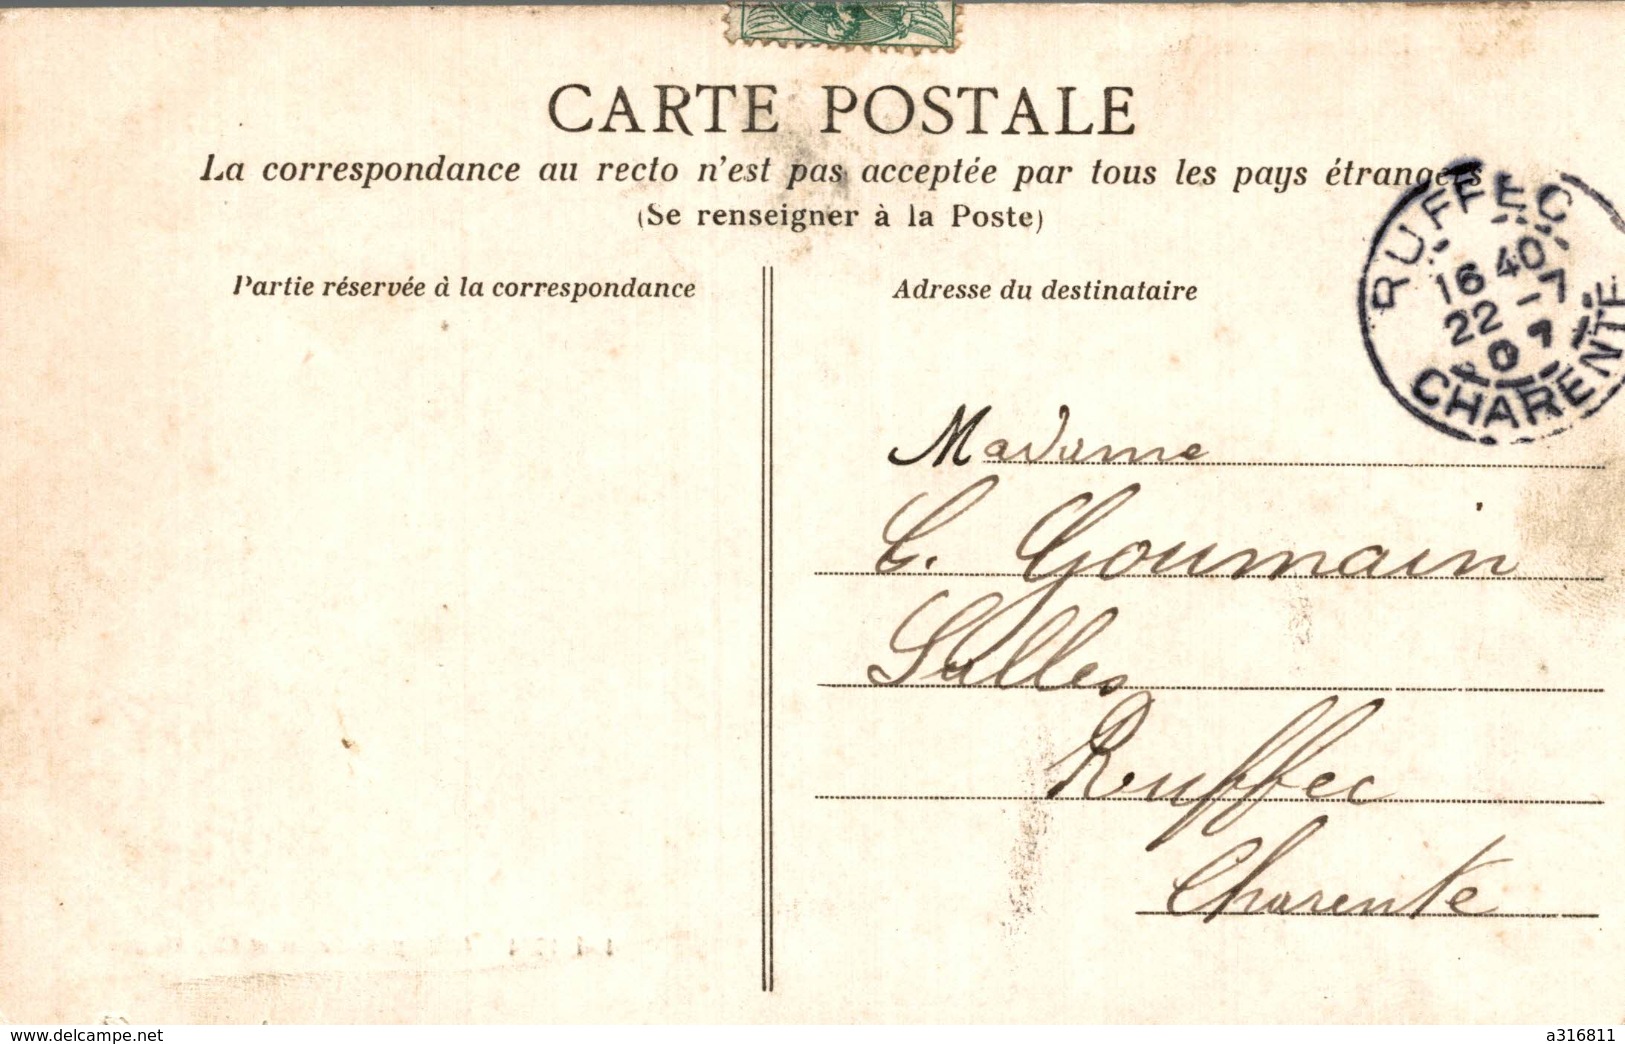 CARTE POSTALE
La correspondance au recto n'est pas acceptée par tous les pays étrangers
(Se renseigner à la Poste)
Partie réservée à la correspondance
Adresse du destinataire
RUFFEC
16 40
22 - 7
07
CHARENTE
Madame
C. Goumain
Salles
Ruffec
Charente
www.delcampe.net
a316811